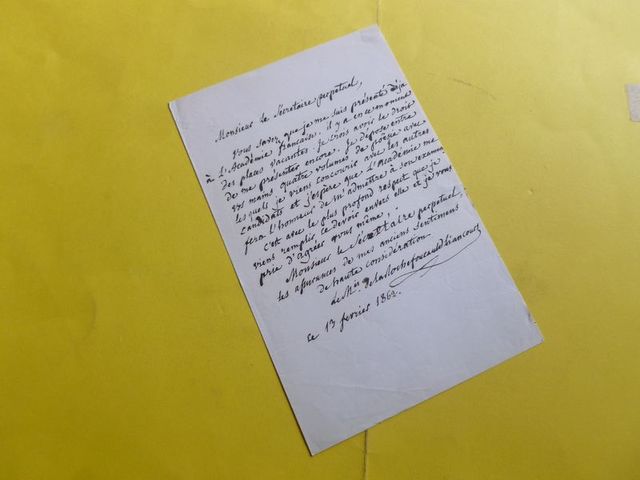 Monsieur le Secretaire perpetuel,
Vous savez que je me suis présenté déjà
à L'Académie française. il y a en ce moment
des places vacantes. Je crois avoir le droit
de me présenter encore. Je depose entre
vos mains quatre volumes de poésie avec
lesquels je viens concourir avec les autres
candidats et j'espère que L'Academie me
fera l'honneur de m'admettre a son examen.
C'est avec le plus profond respect que je
viens remplir ce devoir envers elle et je vous
prie d'agréer vous même,
Monsieur le Secretaire perpetuel,
les assurances de mes anciens sentimens
de haute consideration
Le Mis de la Rochefoucauld Liancourt
Le 13 fevrier 1862.